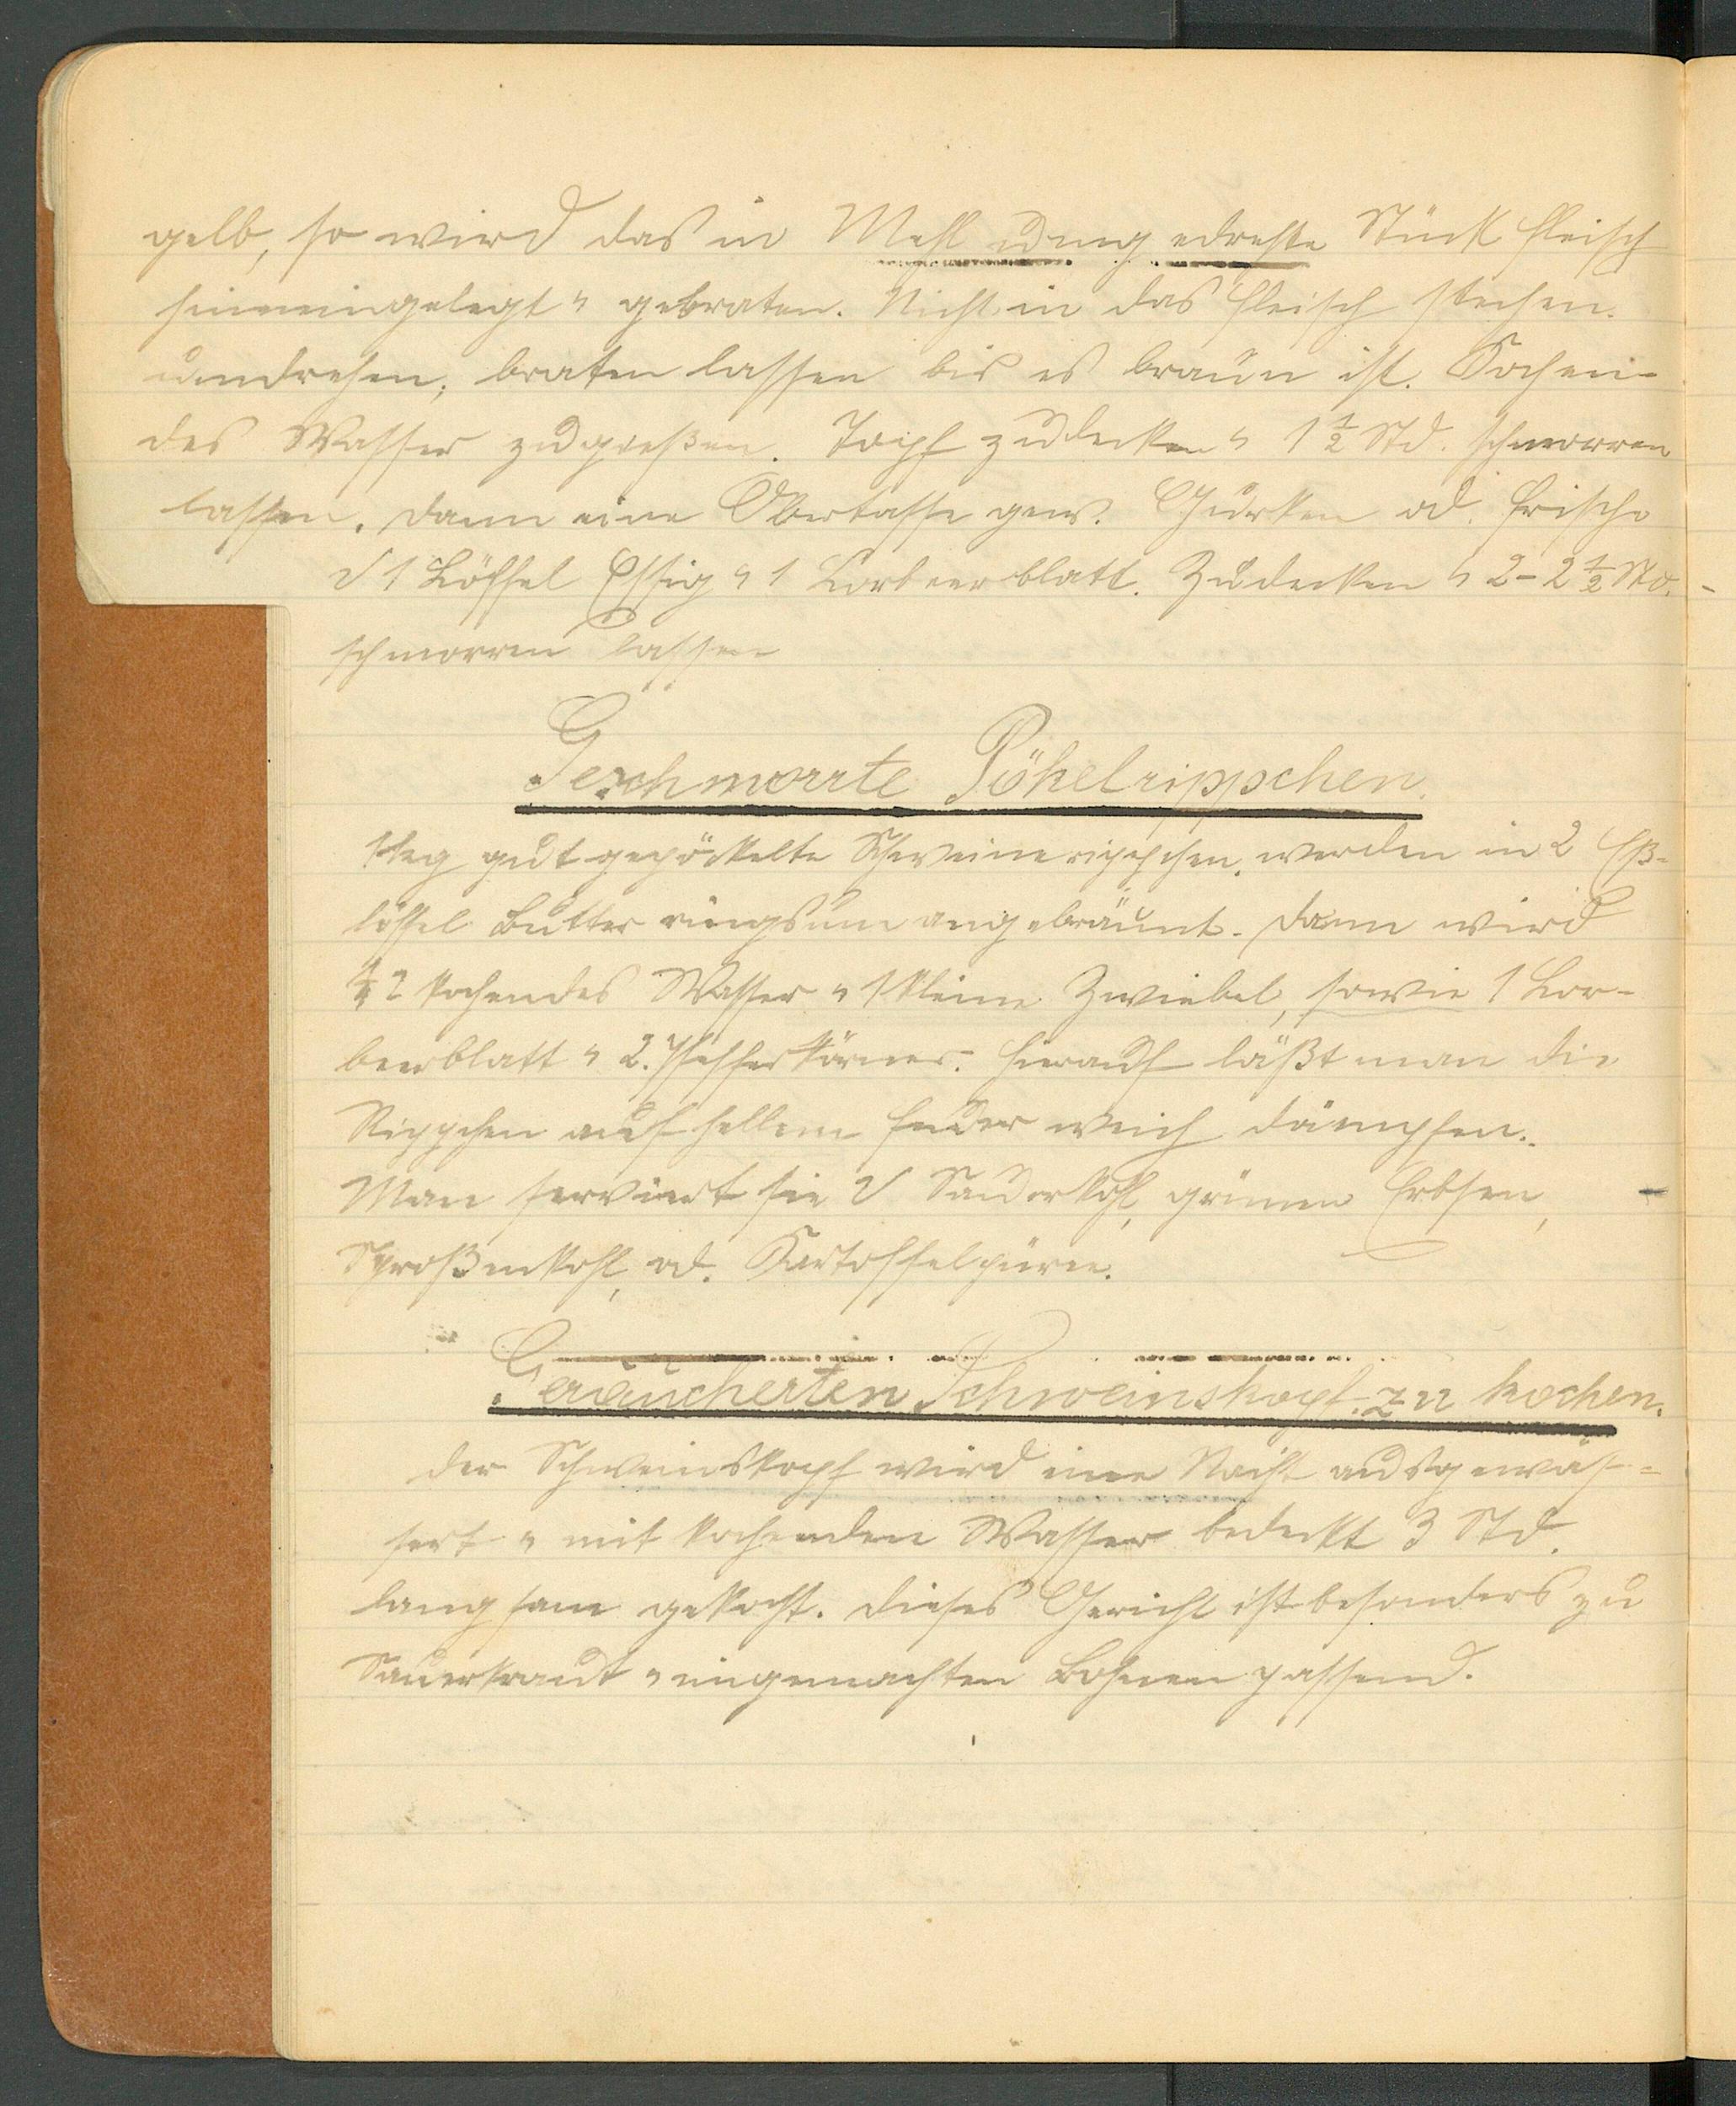 gelb, so wird das in Mehl umgedrehte Stück Fleisch
hineingelegt u gebraten. Nicht in das Fleisch stechen.
umdrehen, braten lassen bis es braun ist. Kochen-
des Wasser zugießen. Topf zudecken u 1½ Std. schmorren
lassen. dann eine Obertasse gew. Gurken od. frische
1 Löffel Essig u 1 Lorbeerblatt. Zudecken u 2-2½ Std.
schmorren lassen
Geschmorrte Pökelrippchen.
1 kg gut gepöckelte Schweinerippchen, werden in 2 Eß-
löffel Butter ringsum angebräunt. Dann wird
¼ l kochendes Wasser u 1 kleine Zwiebel, sowie 1 Lor-
beerblatt u 2. Pfefferkörner. Hierauf läßt man die
Rippchen auf hellem Feuer weich dämpfen.
Man serviert sie Sauerkohl, grünen Erbsen,
Sproßenkohl, od. Kartoffelpüree.
Geräucherten Schweinskopf zu kochen.
der Schweinskopf wird eine Nacht ausgewäs-
sert u mit kochenden Wasser bedeckt 3 Std.
langsam gekocht. Dieses Gericht ist besonders zu
Sauerkraut u eingemachten Bohnen passend.